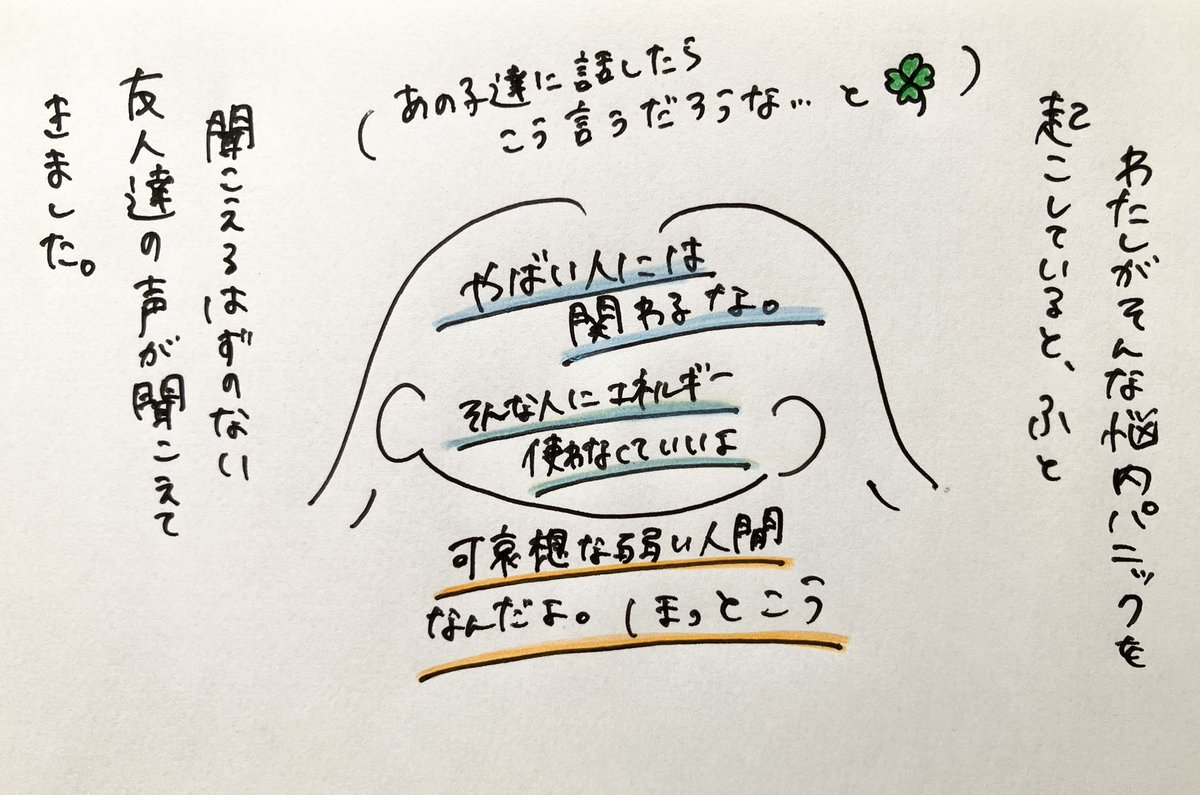 わたしがそんな悩内パニックを
起こしていると、ふと
(あの子達に話したら
こう言うだろうな…と)
やばい人には
関わるな。
そんな人にエネルギー
使わなくていいよ
可哀想な弱い人間
なんだよ。ほっとこう
聞こえるはずのない
友人達の声が聞こえて
きました。